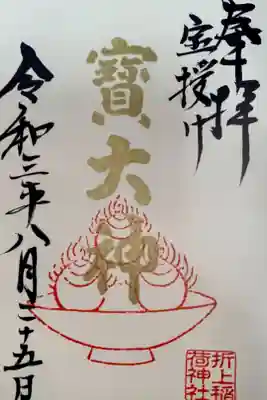 奉拝
宝授け
寶大神
令和三年八月二十五日
折上稲
荷神社